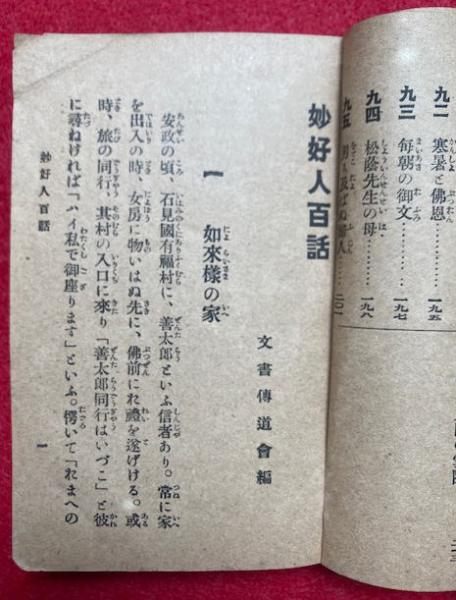 九二 寒暑と佛恩…………一九五
九三 毎朝の御文…………一九七
九四 松蔭先生の母…………一九八
九五
二〇一
妙好人百話
文書傳道會編
一 如來樣の家
安政の頃、石見國有福村に、善太郎といふ信者あり。常に家
を出入の時、女房に物いはぬ先に、佛前にれ禮を遂げける。或
時、旅の同行、其村の入口に來り「善太郎同行はいづこ」と彼
に尋ねければ「ハイ私で御座ります」といふ。愕いて「れまへの
妙好人百話
一